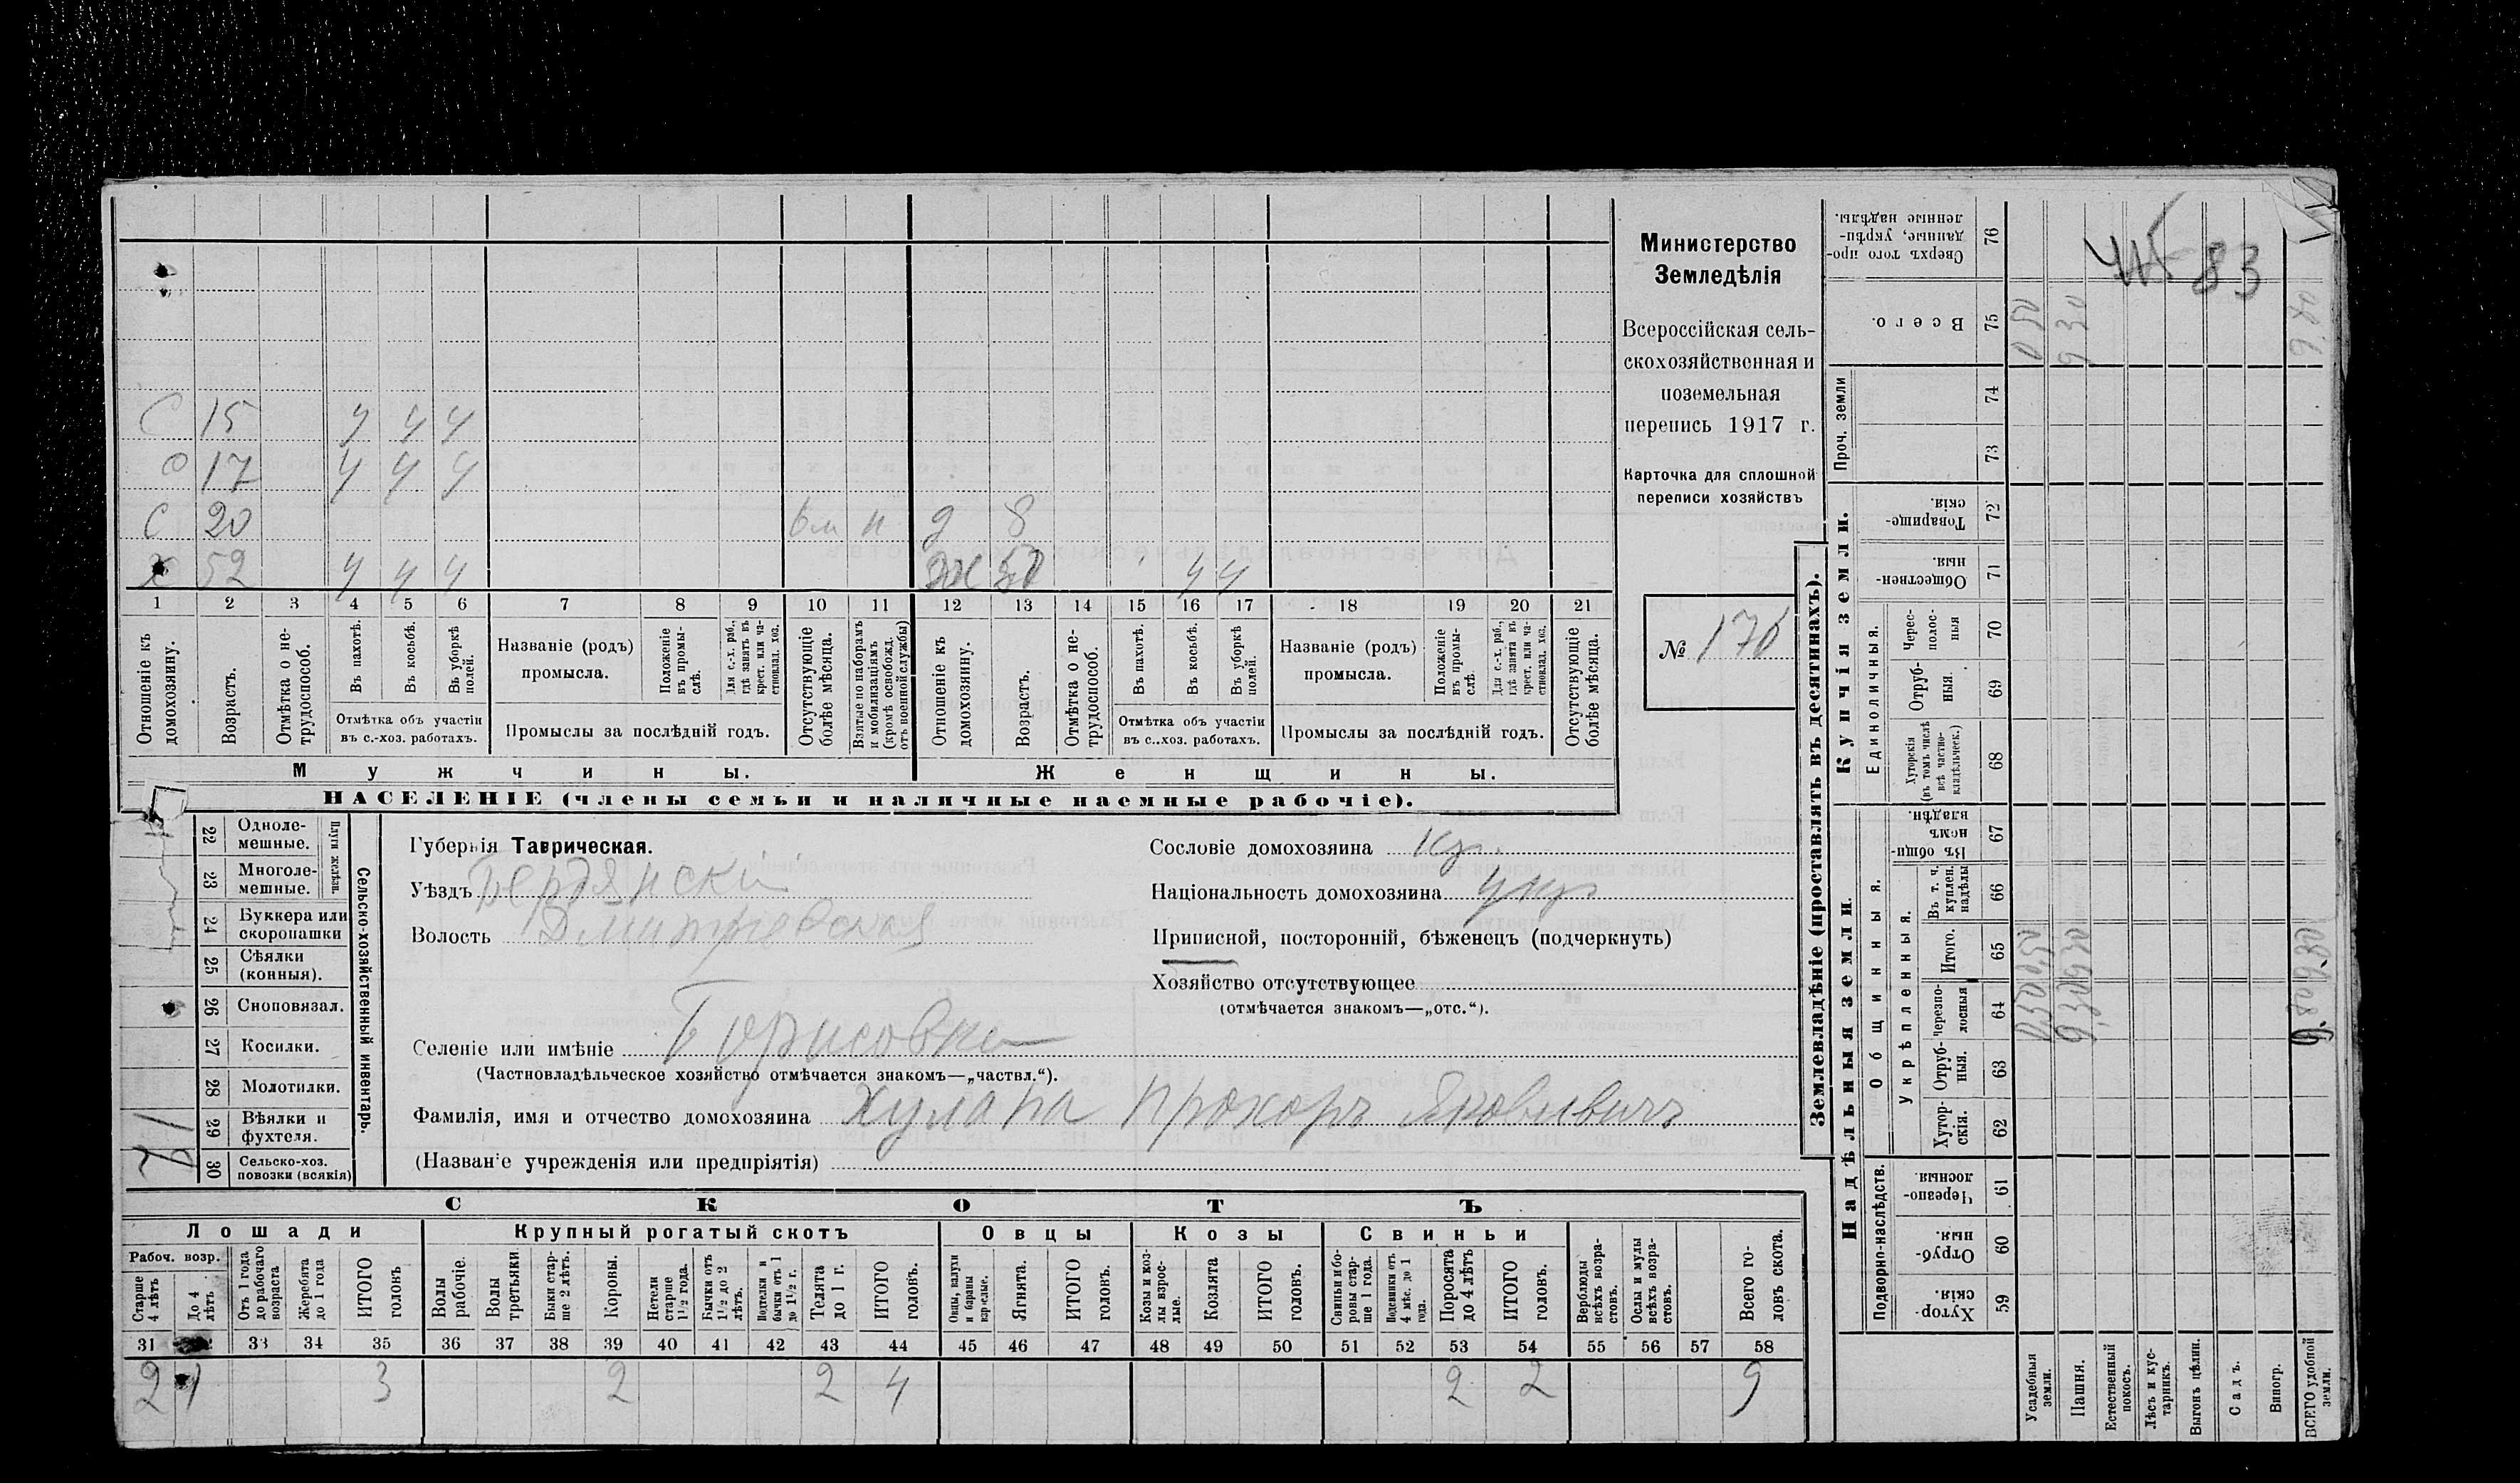 Министерство
Земледѣлія
Всероссійская сель-
скохозяйственная и
поземельная
перепись 1917 г.
Карточка для сплошной
переписи хозяйствъ
№ 176
83
С 15 4 4 4
С 17 4 4 4
С 20 н д 8
Х 52 4 4 4 Ж 4 4
1 2 3 4 5 6 7 8 9 10 11 12 13 14 15 16 17 18 19 20 21
Отношеніе къ домохозяину.
Возрастъ.
Отмѣтка о не-трудоспособ.
Въ пахотѣ.
Въ косьбѣ.
Въ уборкѣ полей.
Отмѣтка объ участіи
въ с.-хоз. работахъ.
Названіе (родъ)
промысла.
Положеніе въ промы-слѣ.
Для с.-х. раб., гдѣ занятъ въ крест. или ча-стновлад. хоз.
Промыслы за послѣдній годъ.
Отсутствующіе болѣе мѣсяца.
Взятые по наборамъ и мобилизаціямъ (кромѣ освобожд. отъ военной службы)
Отношеніе къ домохозяину.
Возрастъ.
Отмѣтка о не-трудоспособ.
Въ пахотѣ.
Въ косьбѣ.
Въ уборкѣ полей.
Отмѣтка объ участіи
въ с..хоз. работахъ.
Названіе (родъ)
промысла.
Положеніе въ промы-слѣ.
Для с.-х. раб., гдѣ занята въ крест. или ча-стновлад. хоз.
Промыслы за послѣдній годъ.
Отсутствующіе болѣе мѣсяца.
Мужчины.
Женщины.
НАСЕЛЕНІЕ (члены семьи и наличные наемные рабочіе).
Сельско-хозяйственный инвентарь.
Плуги желѣзн.
22 Одноле-мешные.
23 Многоле-мешные.
24 Буккера или скоропашки
25 Сѣялки (конныя).
26 Сноповязал.
27 Косилки.
28 Молотилки.
29 Вѣялки и фухтеля. 1
30 Сельско-хоз. повозки (всякія) 2
Губернія Таврическая.
Уѣздъ Бердянскій
Волость Дмитріевская
Селеніе или имѣніе Борисовка
(Частновладѣльческое хозяйство отмѣчается знакомъ—„частвл.“).
Фамилія, имя и отчество домохозяина Хулапа Прохоръ Яковлевичъ
(Названіе учрежденія или предпріятія)
Сословіе домохозяина кр.
Національность домохозяина укр
Приписной, посторонній, бѣженецъ (подчеркнуть)
Хозяйство отсутствующее
(отмѣчается знакомъ—„отс.“).
СКОТЪ
Лошади
Крупный рогатый скотъ
Овцы
Козы
Свиньи
Рабоч. возр.
Старше 4 лѣтъ
До 4 лѣтъ
Отъ 1 года до рабочаго возраста
Жеребята до 1 года
ИТОГО головъ
Волы рабочіе.
Волы третьяки.
Быки стар-ше 2 лѣтъ.
Коровы.
Нетели старше 1½ года.
Бычки отъ 1½ до 2 лѣтъ.
Подтелки и бычки отъ 1 до 1½ г.
Телята до 1 г.
ИТОГО головъ.
Овцы, валухи и бараны взрослые.
Ягнята.
ИТОГО головъ.
Козы и коз-лы взрос-лые.
Козлята
ИТОГО головъ.
Свиньи и бо-ровы стар-ше 1 года.
Подсвинки отъ 4 мѣс. до 1 года.
Поросята до 4 лѣтъ
ИТОГО головъ.
Верблюды всѣхъ возра-стовъ.
Ослы и мулы всѣхъ возра-стовъ.
Всего го-ловъ скота.
31 33 34 35 36 37 38 39 40 41 42 43 44 45 46 47 48 49 50 51 52 53 54 55 56 57 58
2 1 3 2 2 4 2 2 9
Землевладѣніе (проставлять въ десятинахъ).
Надѣльныя земли.
Купчія земли.
Проч. земли
Подворно-наслѣдств.
Общинныя.
Укрѣпленныя.
Единоличныя.
Хутор-скія. 59
Отруб-ныя. 60
Черезпо-лосныя 61
Хутор-скія. 62
Отруб-ныя. 63
Черезпо-лосныя 64
Итого. 65
Въ т. ч. куплен. надѣлы 66
Въ общи-номъ владѣн. 67
Хуторскія (въ томъ числѣ всѣ частно-владѣльческ.) 68
Отруб-ныя. 69
Черес-полос-ныя 70
Обществен-ныя. 71
Товарище-скія. 72
73
74
Всего. 75
Сверхъ того про-данные, укрѣп-ленные надѣлы. 76
Усадебныя земли. 050 050 050
Пашня. 9,30 930 930
Естественный покосъ.
Лѣсъ и кус-тарникъ.
Выгонъ цѣлин.
Садъ.
Виногр.
ВСЕГО удобной земли. 9 80 9 80 9,80